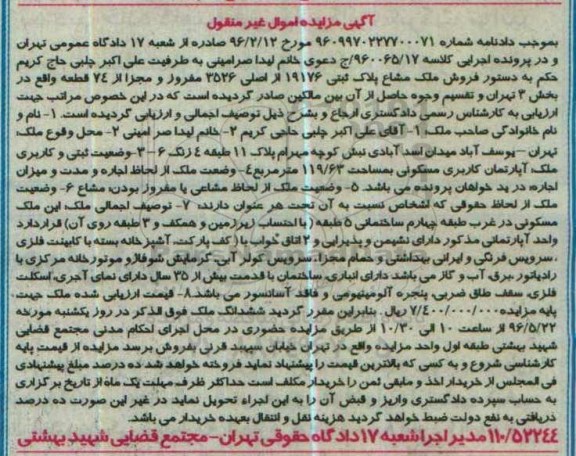 آگهی مزایده اموال غیر منقول
بموجب دادنامه شماره ۹۶۰۹۹۷۰۲۲۷۷۰۰۰۷۱ مورخ ۹۶/۲/۱۲ صادره از شعبه ۱۷ دادگاه عمومی تهران
و در پرونده اجرایی کلاسه ۹۶۰۰۶۵/۱۷/ج دعوی خانم لیدا صرامینی به طرفیت علی اکبر چلبی حاج کریم
حکم به دستور فروش ملک مشاع پلاک ثبتی ۱۹۱۷۶ از اصلی ۳۵۲۶ مفروز و مجزا از ۷٤ قطعه واقع در
بخش ۳ تهران و تقسیم وجوه حاصل از آن بین مالکین صادر گردیده است که در این خصوص مراتب جهت
ارزیابی به کارشناس رسمی دادگستری ارجاع و بشرح ذیل توصیف اجمالی و ارزیابی گردیده است. ۱- نام و
نام خانوادگی صاحب ملک: ۱- آقای علی اکبر چلبی حاجی کریم ۲- خانم لیدا صرامینی ۲- محل وقوع ملک:
تهران – یوسف آباد میدان اسدآبادی نبش کوچه مهرام پلاک ۱۱ طبقه ٤ زنگ ۶ ۳- وضعیت ثبتی و کاربری
ملک: آپارتمان کاربری مسکونی بمساحت ۱۱۹/۶۳ مترمربع ٤- وضعت ملک از لحاظ اجاره و مدت و میزان
اجاره: در ید خواهان پرونده می باشد. ۵- وضعیت ملک از لحاظ مشاعی یا مفروز بودن مشاع ۶- وضعیت
ملک از لحاظ حقوقی که اشخاص نسبت به آن تحت هر عنوان دارند: ۷- توصیف اجمالی ملک: این ملک
مسکونی در غرب طبقه چهارم ساختمانی ۵ طبقه (با احتساب زیرزمین و همکف و ۳ طبقه روی آن) قرار دارد
واحد آپارتمانی مذکور دارای نشیمن و پذیرایی و ۲ اتاق خواب با (کف پارکت، آشپزخانه بسته با کابینت فلزی
، سرویس فرنگی و ایرانی بهداشتی و حمام مجزا، سرویس کولر آبی، گرمایش شوفاژ و موتورخانه مرکزی با
رادیاتور، برق، آب و گاز می باشد. دارای انباری، ساختمان با قدمت بیش از ۳۵ سال دارای نمای آجری، اسکلت
فلزی، سقف طاق ضربی، پنجره آلومینیومی و فاقد آسانسور می باشد. ۸- قیمت ارزیابی شده ملک جهت
پایه مزایده ۷/٤۰۰/۰۰۰/۰۰۰ ریال. بنابراین مقرر گردید ششدانگ ملک فوق الذکر در روز یکشنبه مورخه
۹۶/۵/۲۲ از ساعت ۱۰ الی ۱۰/۳۰ از طریق مزایده حضوری در محل اجرای احکام مدنی مجتمع قضایی
شهید بهشتی طبقه اول واحد مزایده واقع در تهران خیابان سپهبد قرنی بفروش برسد مزایده از قیمت پایه
کارشناسی شروع و به کسی که بالاترین قیمت را پیشنهاد نماید فروخته خواهد شد ده درصد مبلغ پیشنهادی
فی المجلس از خریدار اخذ و مابقی ثمن را خریدار مکلف است حداکثر ظرف مهلت یک ماه از تاریخ برگزاری
به حساب سپرده دادگستری واریز و قبض آن را به این اجراء تحویل نماید در غیر این صورت ده درصد
دریافتی به نفع دولت ضبط خواهد گردید هزینه نقل و انتقال بعهده خریدار می باشد.
۱۱۰/۵۲۲٤٤ مدیر اجرا شعبه ۱۷ دادگاه حقوقی تهران – مجتمع قضایی شهید بهشتی